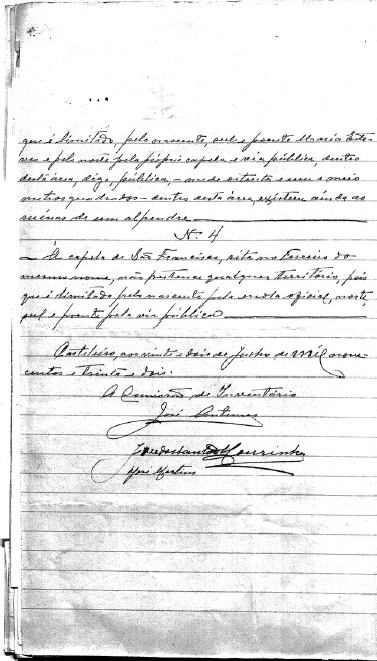 que é limitado, pelo nascente, sul e poente Maria Este-
ves e pelo norte pela própria capela e via pública, dentro
desta área, digo, pública, — onde e trinta e um e meio
metros quadrados — dentro desta área, existem ainda as
ruínas de um alpendre
Nº 4
— A capela de São Francisco, sita no Terreiro do
mesmo nome, não pertence qualquer território, pois
que é limitada pela nascente pela escola oficial, norte,
sul e poente pela via pública
aos vinte e dois de Junho de mil nove-
centos e trinta e dois.
A Comissão de Inventário
José Antunes
Mourinho
José Martins